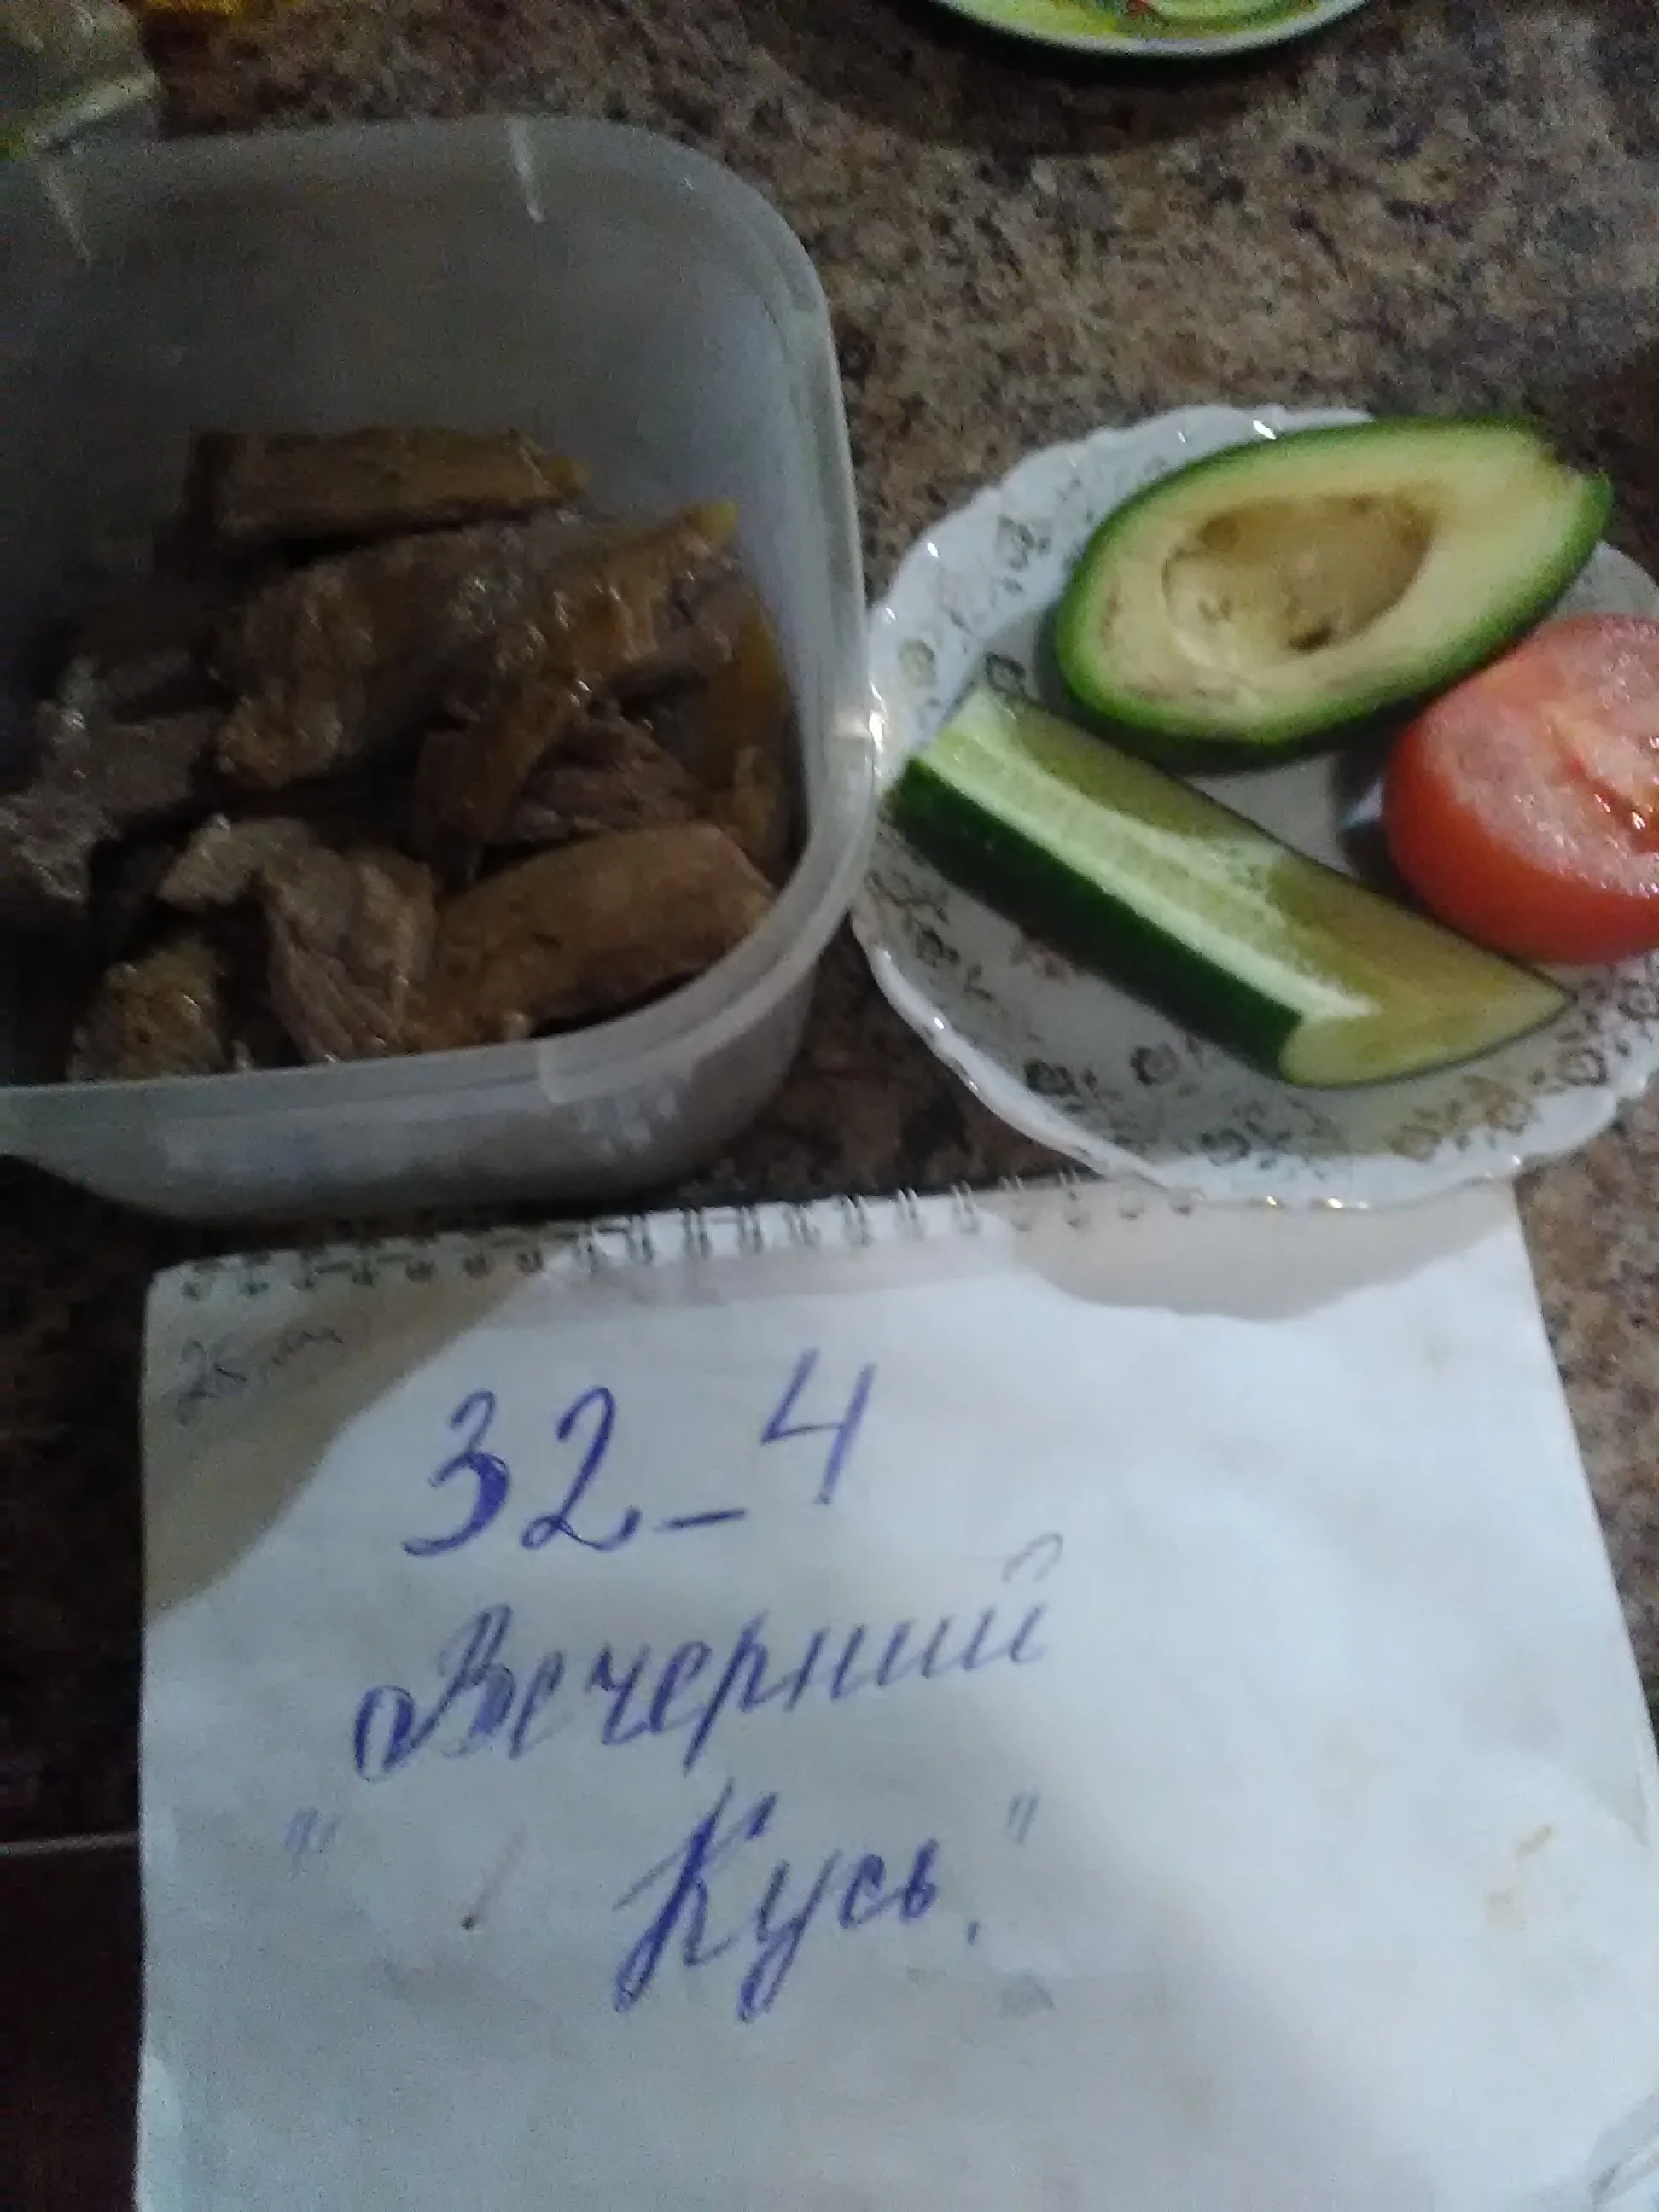 32_4
Вечерний
" Кусь."